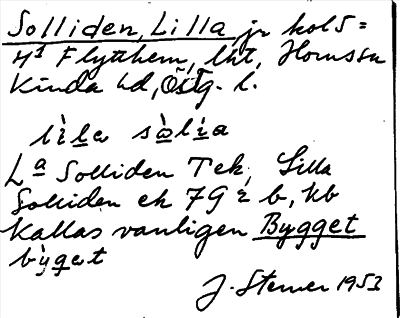 Solliden, Lilla, jr kols=
4¹ Flytthem, lht, Hornssn
Kinda hd, Östg. l.
lìla sòlìa
Lª Solliden Tek, Lilla
Solliden ek 7G é b, Kb
Kallas vanligen Bygget
bỳgat
J. Sterner 1953